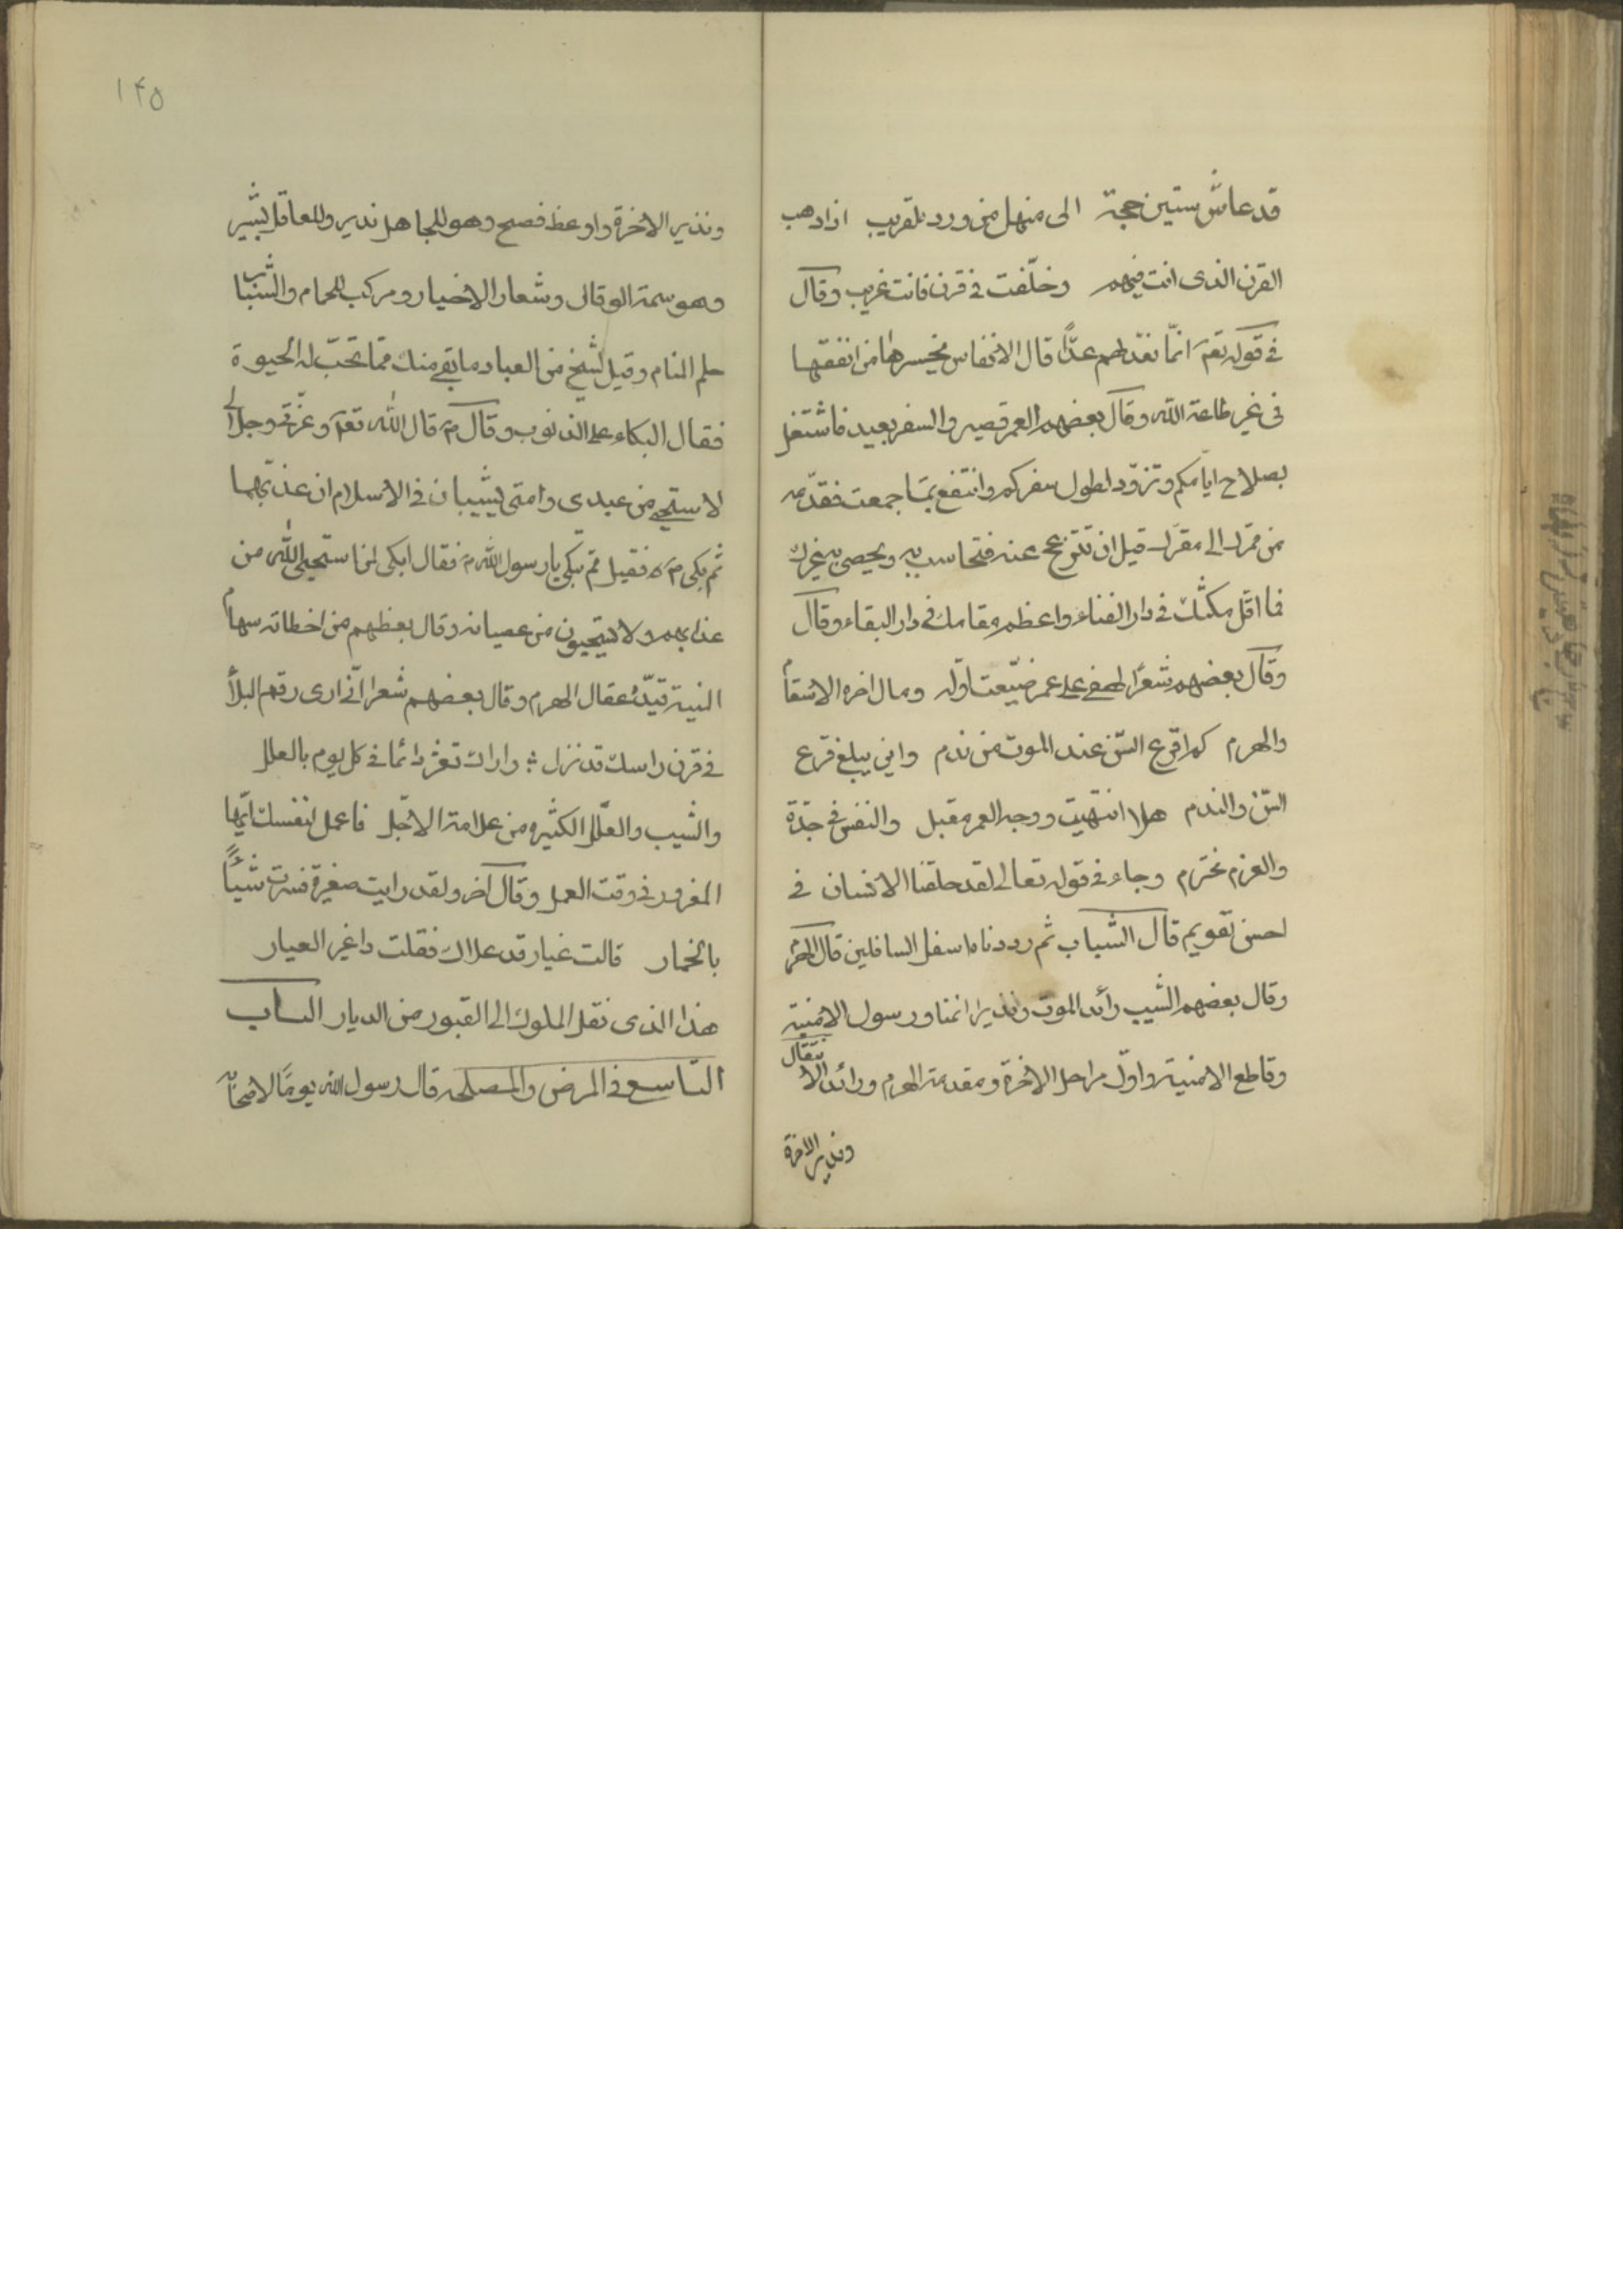 قد عاش ستين حجة الى منهل من ورد لقريب اذا ذهب
القرن الذى انت فيهم وخلّفت فى قرن فانت غريب وقال
فى قوله تعم انّما نعدّ لهم عدًّا قال الانفاس يخسرها من انفقها
فى غير طاعة الله وقال بعضهم العمر قصير والسفر بعيد فاشتغل
بصلاح ايامكم وتزوّد لطول سفركم وانتفع بمّا جمعت فقدّمه
من ممرّك الى مقرّك قبل ان تنزعج عنه فتحاسب به ويحصى به غيرك
فما اقل مكثك فى دار الفناء واعظم مقامك فى دار البقاء وقال
وقال بعضهم شعرًا لهفى على عمر ضيّعت اوّله ومال اخره الاسقام
والهرم كم اقرع السّن عند الموت من ندم واين يبلغ قرع
السّن والندم هلا انتهيت ووجه العمر مقبل والنفس فى جدّة
والعزم مخترم وجاء فى قوله تعالى لقد خلقنا الانسان فى
احسن تقويم قال الشباب ثم رددناه اسفل السافلين قال الهرم
وقال بعضهم الشيب رائد الموت ونذير الفنا ورسول الامنية
وقاطع الامنية واوّل مراحل الاخرة ومقدمة الهرم ورائد الانتقال
ونذير الاخرة
١٤٥
ونذير الاخرة واوعظ فصح وهو للجاهل نذير وللعاقل بشير
وهو سمة الوقار وشعار الاخيار ومركب للحمام والشباب
حلم المنام وقيل لشيخ من العباد ما بقى منك ممّا تحبّ له الحيوة
فقال البكاء على الذنوب وقال م قال الله تعم وعزّتى وجلالى
لاستحيى من عبدى وامتى يشيبان فى الاسلام ان عذبهما
ثم بكى م فقيل مم تبكى يا رسول الله م فقال ابكى لمن استحيى الله من
عذابهم ولا يستحيون من عصيانه وقال بعظهم من اخطاته سهام
المنية قيّده عقال الهرم وقال بعضهم شعرا انّى ارى رقم البلاء
فى قرن راسك قد نزل واراك تعثر دائما فى كل يوم بالعلل
والشيب والعلل الكثيره من علامة الاجل فاعمل لنفسك ايّها
المغرور فى وقت العمل وقال آخر ولقد رايت صغيرة فسترت شيبًا
بالخمار قالت غبار قد علاك فقلت ذا غير الغبار
هذا الذى نقل الملوك الى القبور من الديار الباب
التاسع فى المرض والمصلحه قال رسول الله يومًا لاصحابه